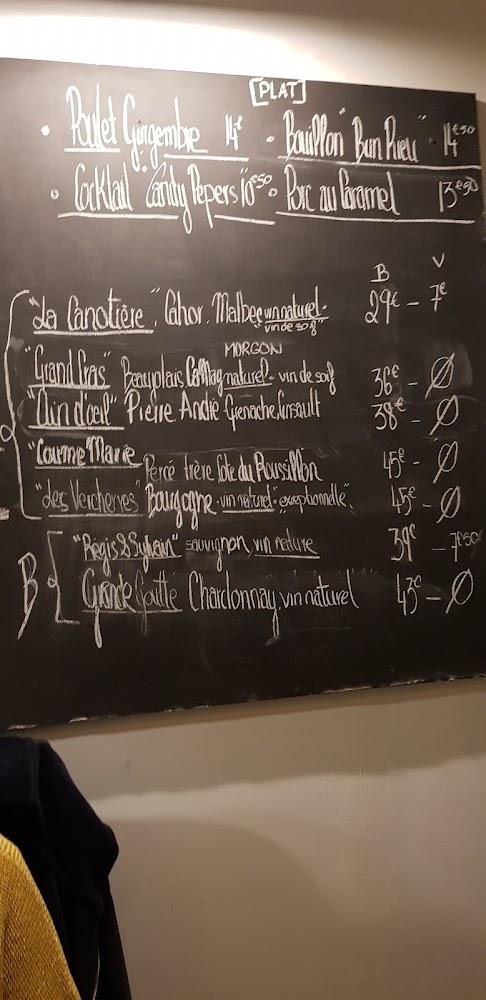 [PLAT]
• Poulet Gingembre 14€ • Bouillon "Bun Rieu" • 14€50
• Cocktail "Candy Pepers" 10€50 • Porc au Caramel 13€50
B V
"La Canotière", Cahor. Malbec vin naturel- 29€ – 7€
"vin de soif"
MORGON
"Grand Cras" Beaujolais naturel - vin de soif 36€ – Ø
"Clin d'oeil" Pierre André Grenache, 38€ – Ø
"Courme" Marie Percé Côte du Roussillon 45€ – Ø
"des Vercherres" Bourgogne - vin naturel - "exceptionnelle", 45€ – Ø
B "Regis & Sylvain" sauvignon, vin nature 39€ – 7€50
Grande Goutte Chardonnay, vin naturel" 43€ – Ø